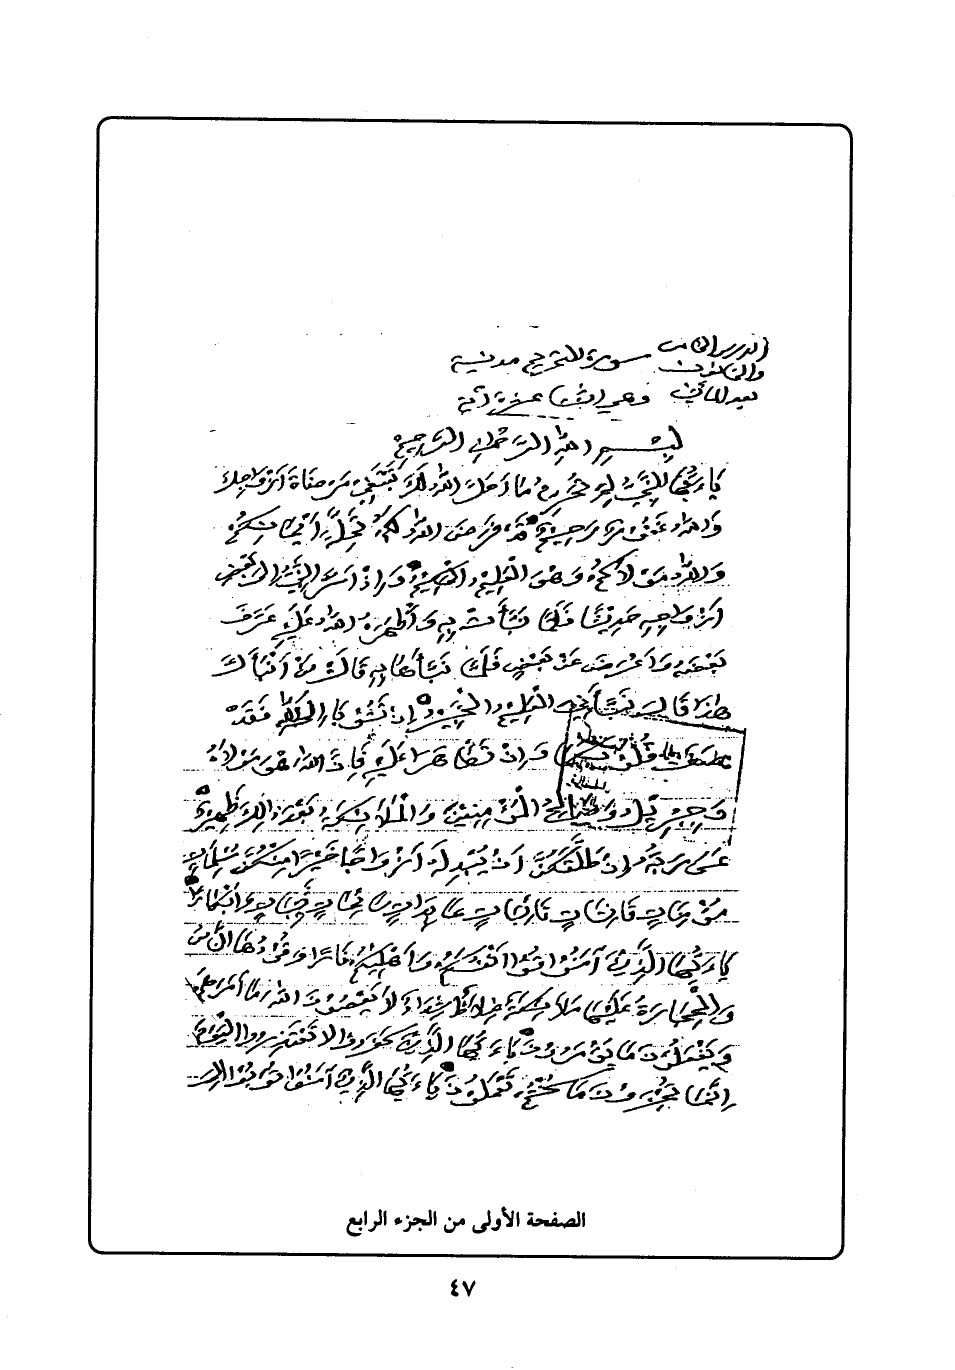 الدرس الخامس
والثمانون
بعد المائتين
سورة التحريم مدنية
وهي اثنتا عشرة آية
بِسْمِ اللهِ الرَّحْمَٰنِ الرَّحِيمِ
يَا أَيُّهَا النَّبِيُّ لِمَ تُحَرِّمُ مَا أَحَلَّ اللهُ لَكَ تَبْتَغِي مَرْضَاةَ أَزْوَاجِكَ
وَاللهُ غَفُورٌ رَحِيمٌ قَدْ فَرَضَ اللهُ لَكُمْ تَحِلَّةَ أَيْمَانِكُمْ
وَاللهُ مَوْلَاكُمْ وَهُوَ الْعَلِيمُ الْحَكِيمُ وَإِذْ أَسَرَّ النَّبِيُّ إِلَى بَعْضِ
أَزْوَاجِهِ حَدِيثًا فَلَمَّا نَبَّأَتْ بِهِ وَأَظْهَرَهُ اللهُ عَلَيْهِ عَرَّفَ
بَعْضَهُ وَأَعْرَضَ عَنْ بَعْضٍ فَلَمَّا نَبَّأَهَا بِهِ قَالَتْ مَنْ أَنْبَأَكَ
هَذَا قَالَ نَبَّأَنِيَ الْعَلِيمُ الْخَبِيرُ إِنْ تَتُوبَا إِلَى اللهِ فَقَدْ
صَغَتْ قُلُوبُكُمَا وَإِنْ تَظَاهَرَا عَلَيْهِ فَإِنَّ اللهَ هُوَ مَوْلَاهُ
وَجِبْرِيلُ وَصَالِحُ الْمُؤْمِنِينَ وَالْمَلَائِكَةُ بَعْدَ ذَلِكَ ظَهِيرٌ
عَسَى رَبُّهُ إِنْ طَلَّقَكُنَّ أَنْ يُبْدِلَهُ أَزْوَاجًا خَيْرًا مِنْكُنَّ مُسْلِمَاتٍ
مُؤْمِنَاتٍ قَانِتَاتٍ تَائِبَاتٍ عَابِدَاتٍ سَائِحَاتٍ ثَيِّبَاتٍ وَأَبْكَارًا
يَا أَيُّهَا الَّذِينَ آمَنُوا قُوا أَنْفُسَكُمْ وَأَهْلِيكُمْ نَارًا وَقُودُهَا النَّاسُ
وَالْحِجَارَةُ عَلَيْهَا مَلَائِكَةٌ غِلَاظٌ شِدَادٌ لَا يَعْصُونَ اللهَ مَا أَمَرَهُمْ
وَيَفْعَلُونَ مَا يُؤْمَرُونَ يَا أَيُّهَا الَّذِينَ كَفَرُوا لَا تَعْتَذِرُوا الْيَوْمَ
إِنَّمَا تُجْزَوْنَ مَا كُنْتُمْ تَعْمَلُونَ يَا أَيُّهَا الَّذِينَ آمَنُوا تُوبُوا إِلَى
الصفحة الأولى من الجزء الرابع
٤٧